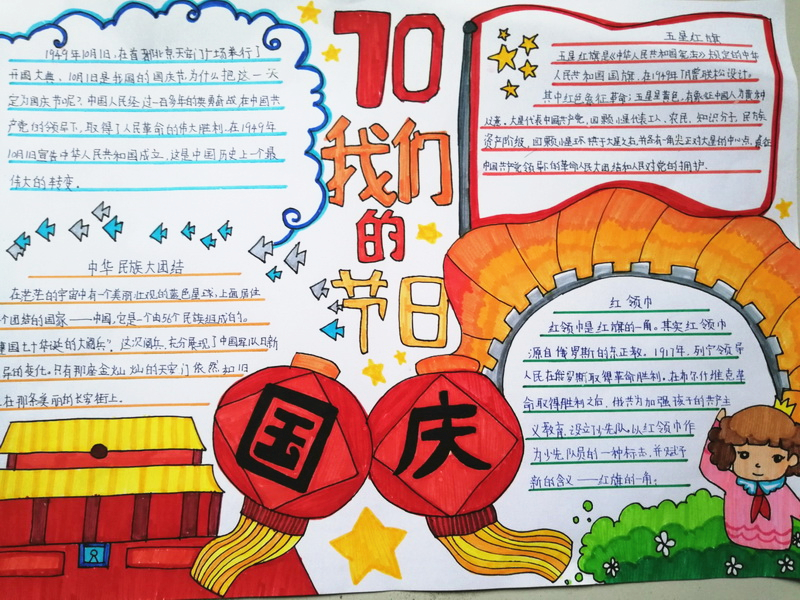 1949年10月1日,在首都北京天安门广场举行了
开国大典、10月1日是我国的国庆节为什么把这一天
定为国庆节呢?中国人民经过一百多年的英勇奋战,在中国共
产党的领导下,取得了人民革命的伟大胜利,在1949年
10月1日宣告中华人民共和国成立,这是中国历史上一个最
伟大的转变。
70
我们
的
节日
国
庆
五星红旗
五星红旗是《中华人民共和国宪法》规定的中华
人民共和国国旗,在1949年7月曾联松设计。
其中红色象征革命;五星呈黄色,有象征中国人为黄种
之意,大星代表中国共产党,四颗小星代表工人、农民、知识分子、民族
资产阶级,四颗小星环拱于大星之右,并各有一角尖正对大星的中心点,
中国共产党领导的革命人民大团结和人民对党的拥护.
中华民族大团结
在茫茫的宇宙中有一个美丽、壮观的蓝色星球,上面居住
个团结的国家——中国,它是一个由56个民族组成的。
建国七十华诞的大阅兵?这次阅兵,充分展现了中国军队日新
异的变化。只有那座金灿灿的天安门依然如旧
在那条美丽的长安街上。
红领巾
红领巾是红旗的一角。其实红领巾
源自俄罗斯的东正教。1917年,列宁领导
人民在俄罗斯取得革命胜利。在布尔什维克革
命取得胜利之后,俄共为加强孩子的共产主
义教育,设立少先队,以红领巾作
为少先队员的一种标志,并赋予
新的含义——红旗的一角。